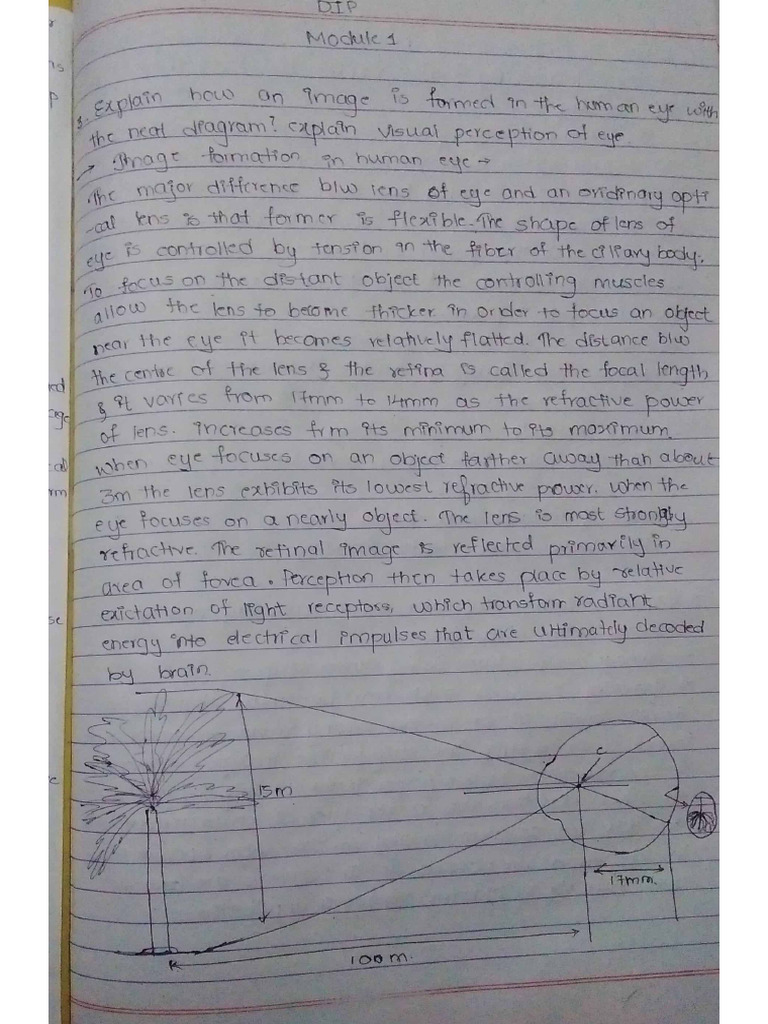 DIP
Module 1
3. Explain how an image is formed in the human eye with
the neat diagram? explain visual perception of eye.
→ Image formation in human eye →
The major difference blw lens of eye and an oridinary opti
-cal lens is that former is flexible. The shape of lens of
eye is controlled by tension in the fiber of the ciliary body.
To focus on the distant object the controlling muscles
allow the lens to become thicker in order to focus an object
near the eye it becomes relatively flatted. The distance blw
the centre of the lens & the retina is called the focal length
& it varies from 17mm to 14mm as the refractive power
of lens. increases frm its minimum to its maximum.
when eye focuses on an object farther away than about
3m the lens exhibits its lowest refractive prower. when the
eye focuses on a nearly object. The lens is most strongly
refractive. The retinal image is reflected primarily in
area of fovea. Perception then takes place by relative
exictation of light receptors, which transform radiant
energy into electrical impulses that are ultimately decoded
by brain.
15m
C
17mm.
100m.